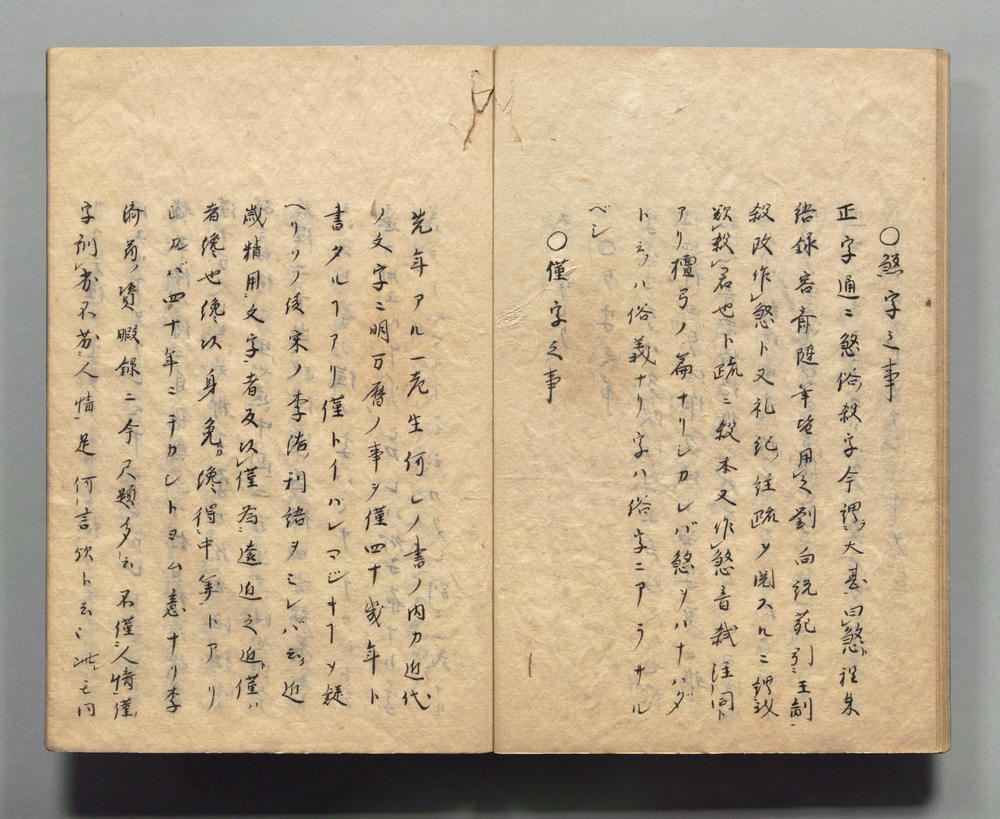 〇煞字之事
正字通ニ煞俗殺字今謂大甚曰煞程朱
語録容斎随筆皆用之劉向説苑引王制
殺改作煞ト又礼記註疏ヲ閲スルニ
欲殺君也ト疏ニ殺本又作煞音弑註同ト
アリ檀弓ノ篇ナリシカレバ煞ヲハナハダ
トヨムハ俗義ナリ字ハ俗字ニアラサル
ベシ
〇僅字之事
先年アル一先生何レノ書ノ内カ近代
ノ文字ニ明万暦ノ事ヲ僅四十幾年ト
書タルヿアリ僅トイハレマジキヿヲ疑
ヘリソノ後宋ノ李済刊誤ヲミレバ云近
歳精用文字者及以僅為遠近之近僅ハ
者纔也纔以身免纔得中第トアリ
シカレバ四十年ニチカシトヨム意ナリ李
済翁ノ資暇録ニ今尺題多云不僅人情僅
字訓不人情是何言歟ト云此モ同